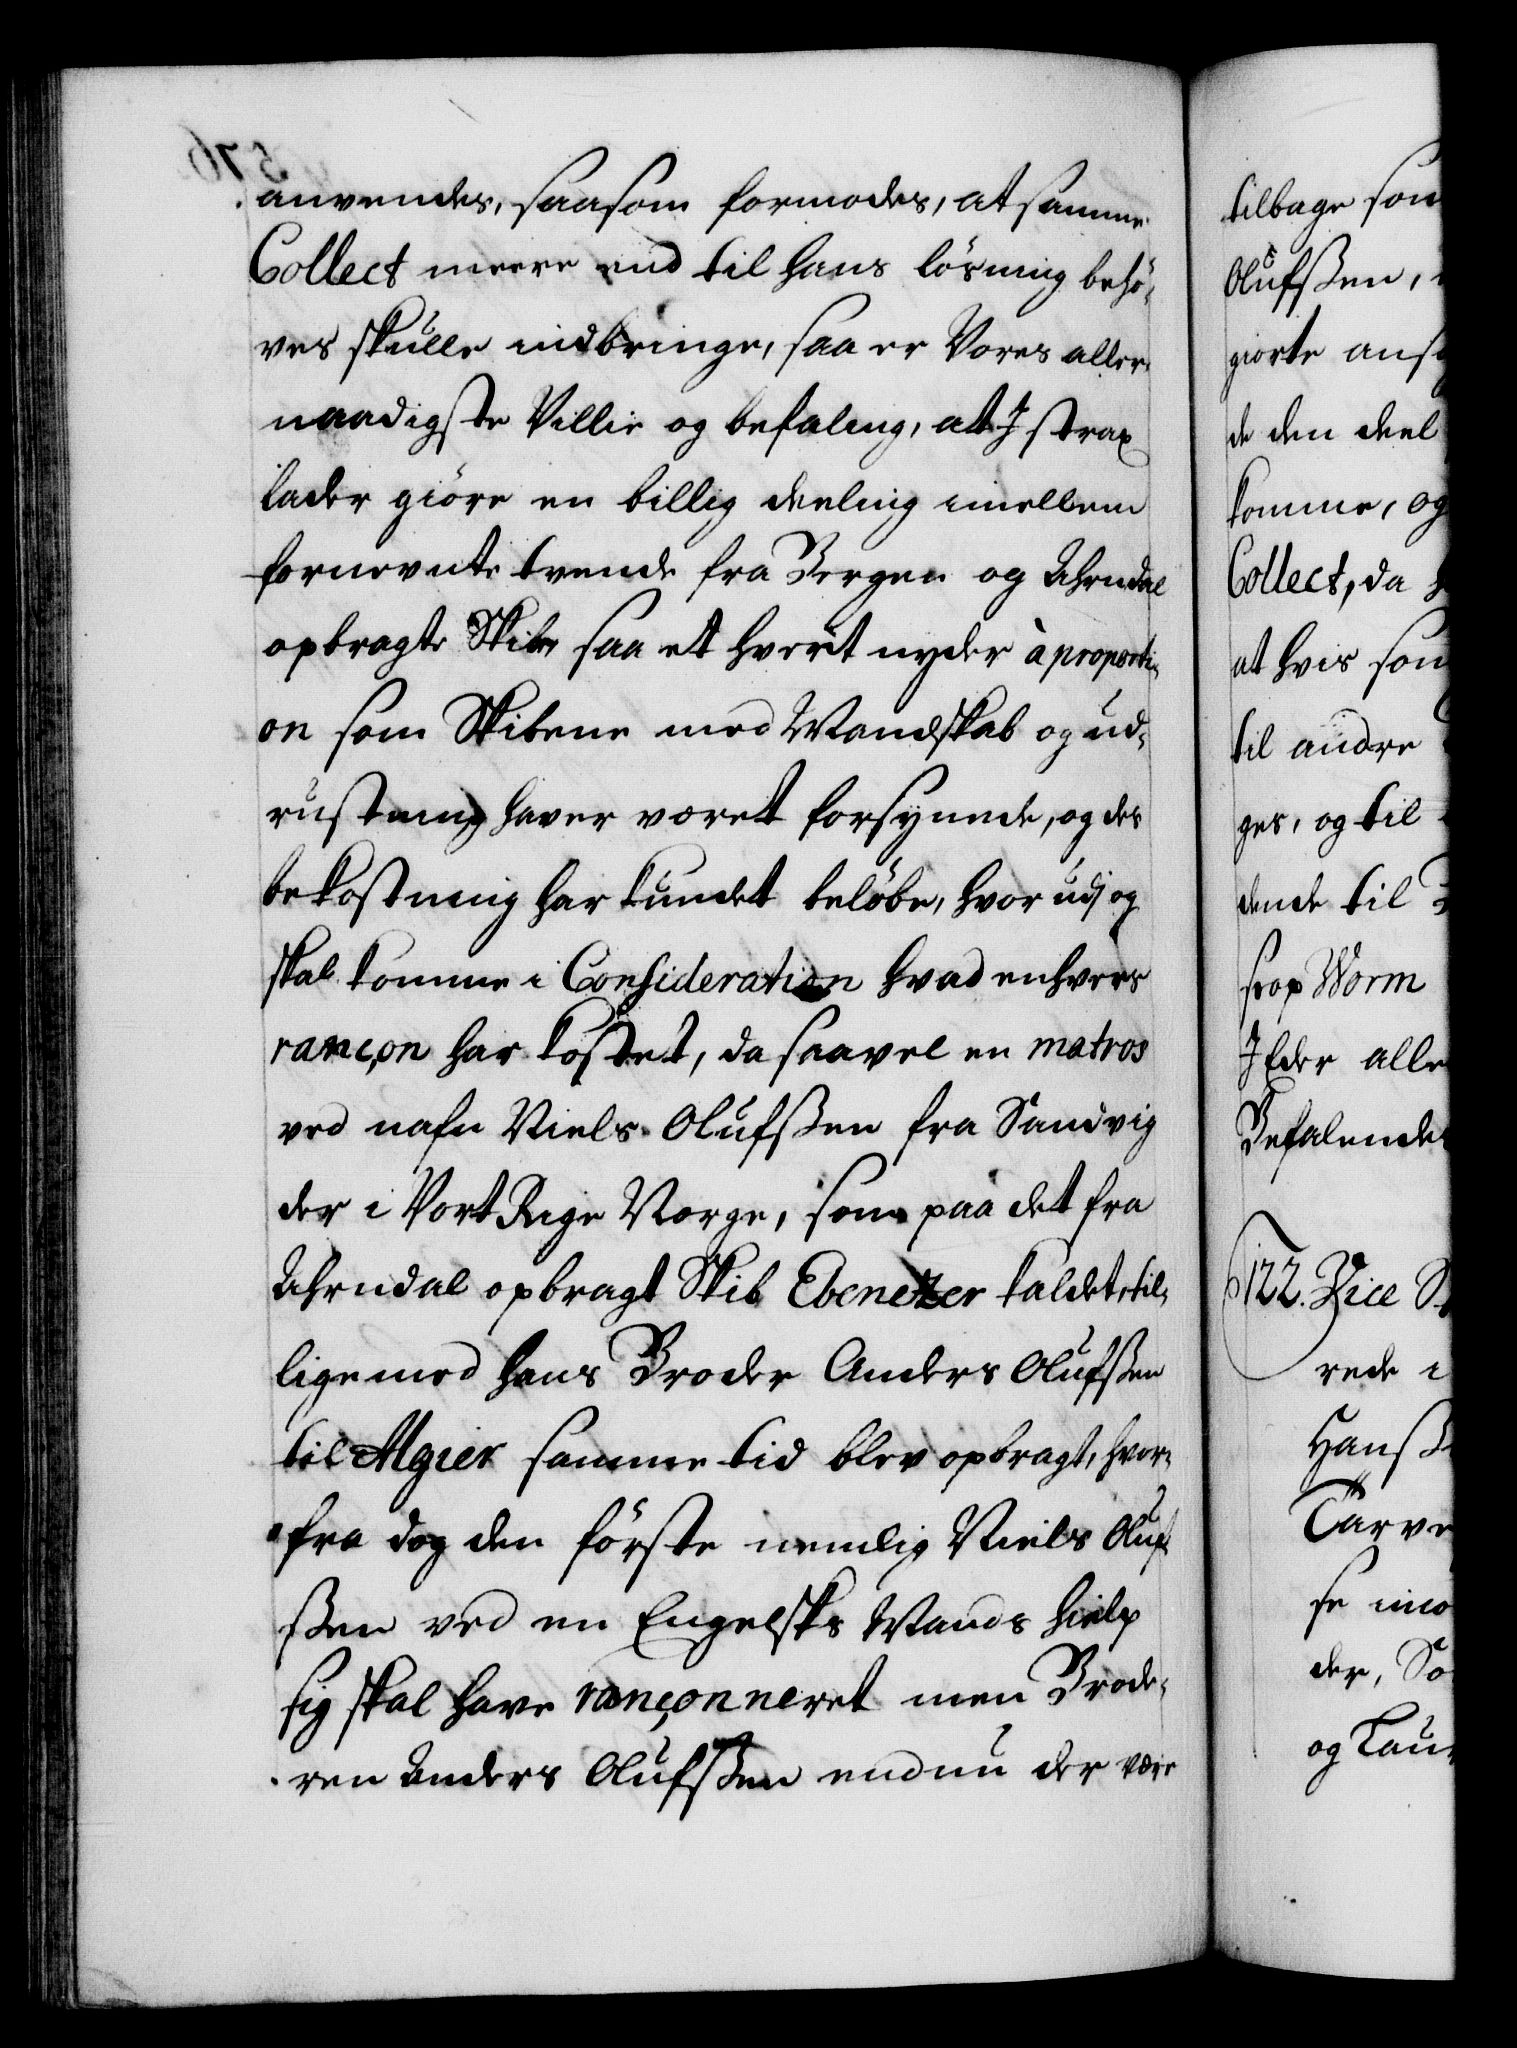 anvendes, saasom formodes, at samme
Collect meere end til hans lösning behö-
ves skulle indbringe, saa er Vores aller-
naadigste Villie og befaling, at I strax
lader giöre en billig deeling imellem
fornevnte tvende fra Bergen og Ahrndal
opbragte Skibe, saa et hvert nyder à proporti-
on som Skibene med Mandskab og ud-
rustning haver været forsynede, og des
bekostning har kundet belöbe, hvor udj og
skal komme i Consideration hvad enhvers
rançon har kostet, da saavel en matros
ved nafn Niels Olufssen fra Sandvig
der i Vort Rige Norge, som paa det fra
Ahrndal opbragt Skib Ebenezer kaldet, til-
lige med hans Broder Anders Olufssen
til Algier samme tid blev opbragt, hvor-
fra dog den förste nemlig Niels Oluf-
ssen ved en Engelsks Mands hielp
sig skal have rançonneret men Brode-
ren Anders Olufssen endnu der være
tilbage som
Olufssen,
giorte
de den deel
komme, og
Collect, da
at hvis som
til andre
ges, og til
dende til
scop Worm
I Eder aller
Befalendes
122. Vice
rede i
Hanss
Tarve
der,
og